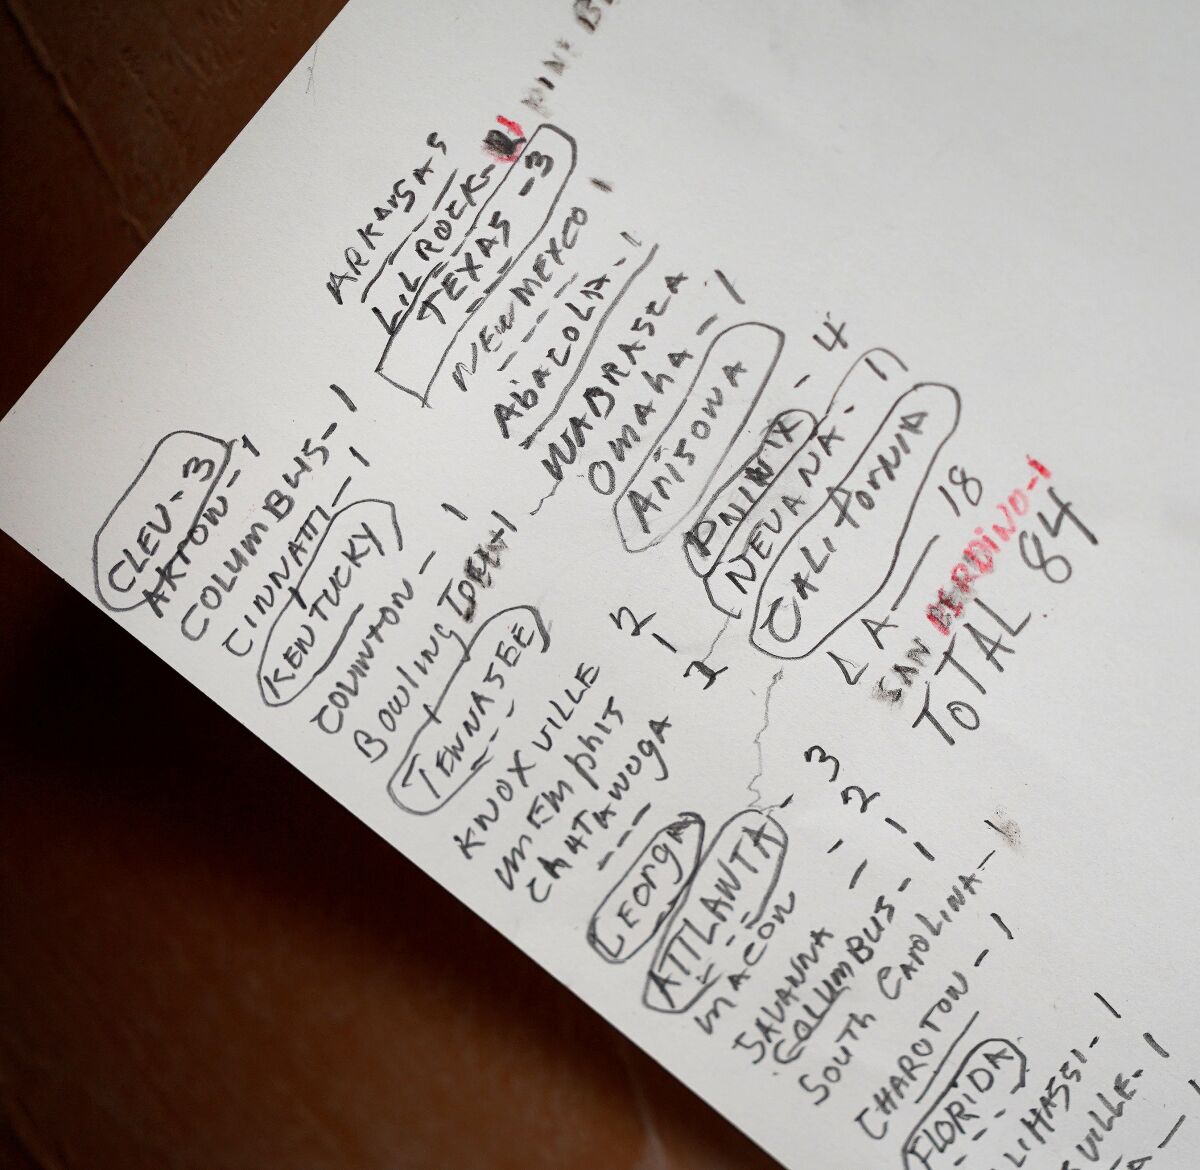 CLEV - 3
AKTON - 1
COLUMBUS - 1
CINNATTI - 1
KENTUCKY
COVINTON - 1
BowLING
TENNASEE
KNOXVILLE 2
mEmphis 1
ChATAWOGA 1
LEORGA
ATTLANTA - 3
mACON - 2
SAVANNA - 1
COLUMBUS - 1
SOUTH CAROLINA - 1
CHAROTON - 1
FLORIDA
LIHASSI - 1
VILLE - 1
ARKANSAS
LILROCK - 1
TEXAS - 3
NEW MEXCO 1
AbACOLIA - 1
WABRASKA
OmAhA - 1
ARISONA
PNINIX - 4
NEVANA - 1
CALIFORNIA
LA - 18
SAN BERDINO - 1
TOTAL 84